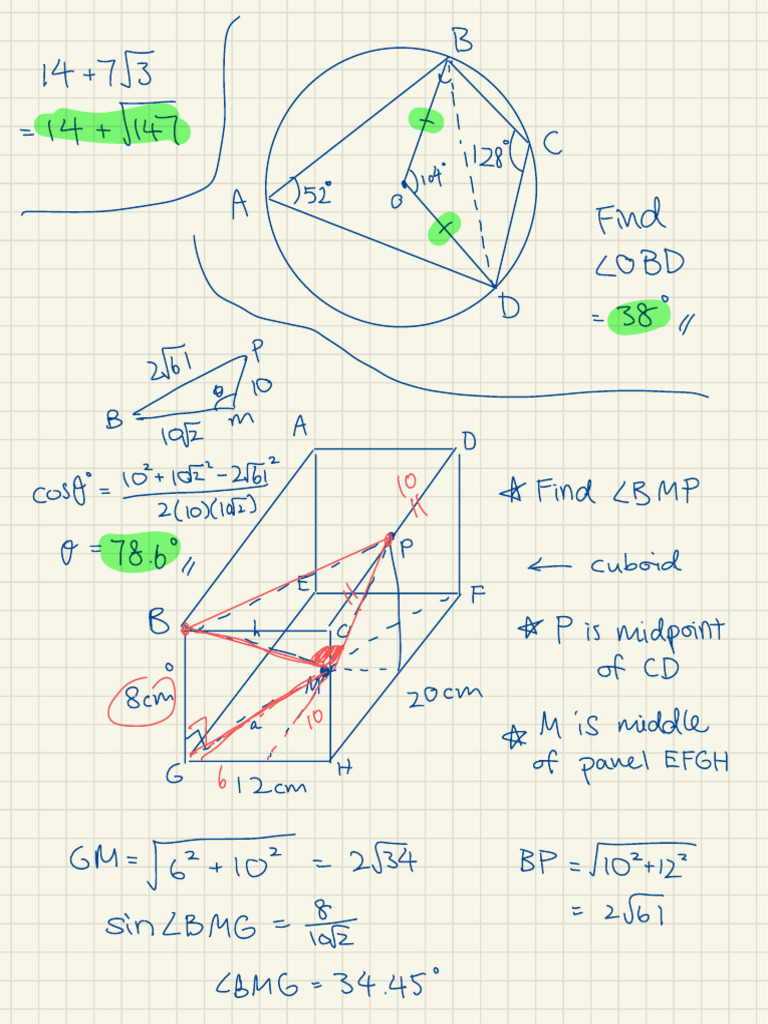 14 + 7√3
= 14 + √147
B
C
A
52°
O
104°
128°
D
Find
∠OBD
= 38° //
2√61
P
θ
10
B
10√2
m
cosθ° = (10² + 10√2² - 2√61²) / 2(10)(10√2)
θ = 78.6° //
A
D
10
P
E
F
B
h
C
M
8cm
a
10
20cm
G
6
12cm
H
☆ Find ∠BMP
← cuboid
☆ P is midpoint
of CD
☆ M is middle
of panel EFGH
GM = √6² + 10² = 2√34
sin∠BMG = 8/10√2
∠BMG = 34.45°
BP = √10² + 12²
= 2√61